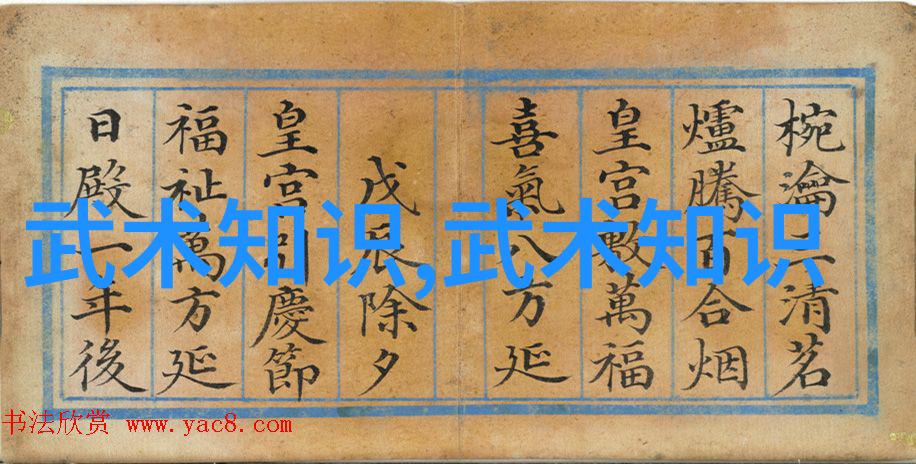 椀瀹三清茗
爐騰百合烟
皇宮敷萬福
喜氣八方延
戊辰除夕
皇宮引慶節
福祉萬方延
日殿一年後
武术知识,武术知识
书法欣赏 www.yac8.com